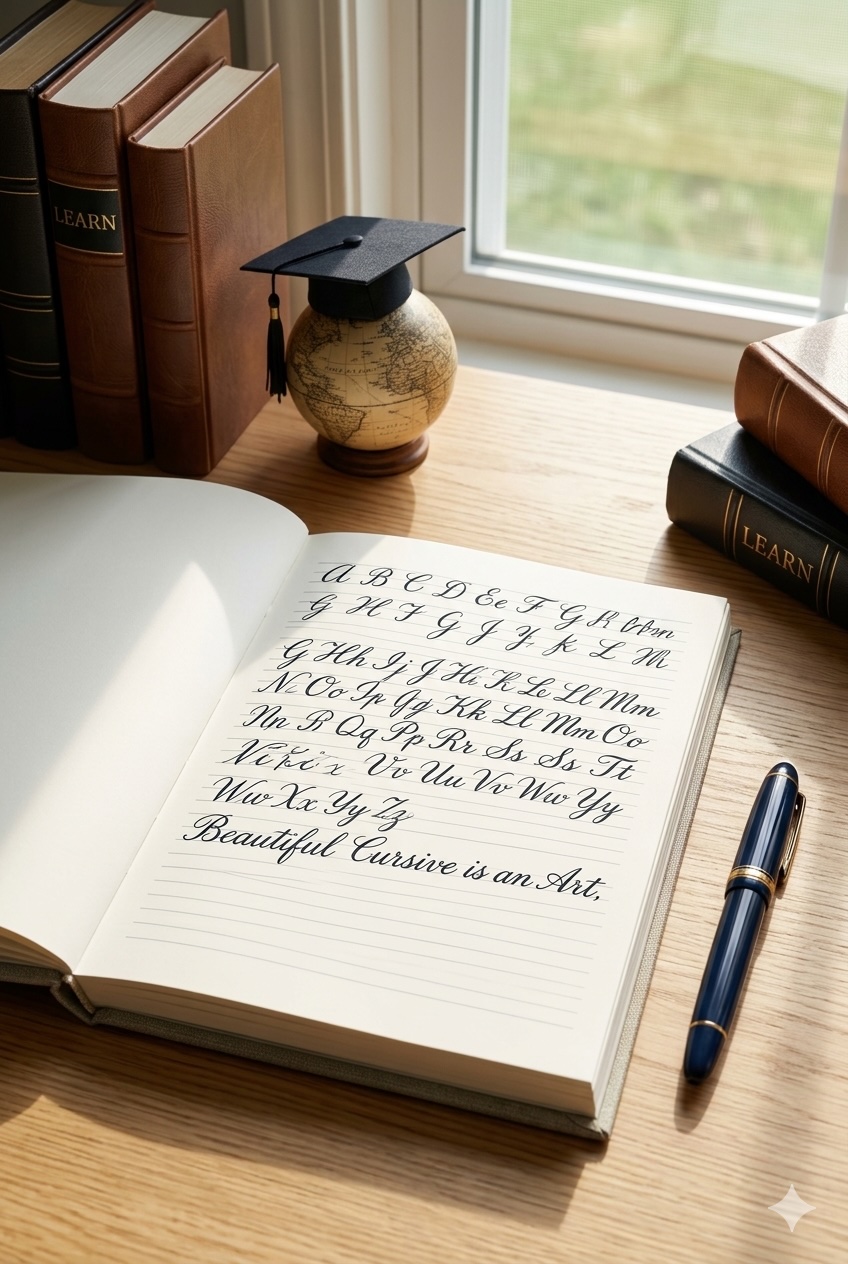 LEARN
LEARN
A B C D Ee F G K
G H I G J Y K L M
G Hh Ij J Hi K Le Ll Mm
N Oo Ip Qg Kk Ll Mm Oo
Nn B Qq Pp Rr Ss Ss Tt
Vv Uu Vv Ww Yy
Ww Xx Yy Zz
Beautiful Cursive is an Art,